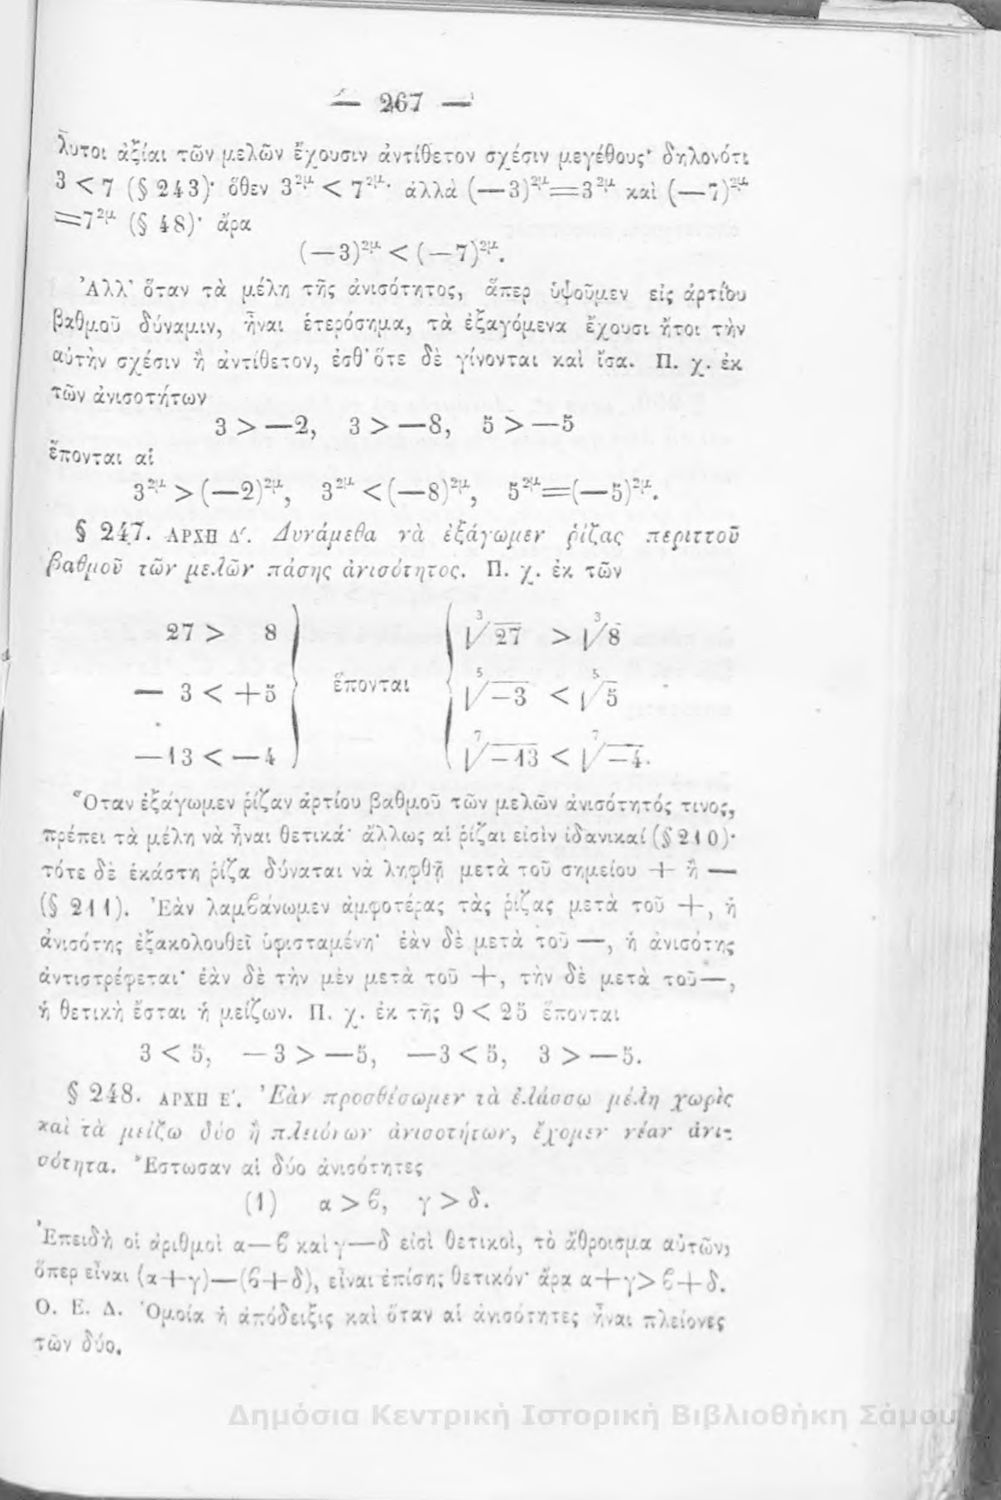 — 267 —
λυτοι ἀξίαι τῶν μελῶν ἔχουσιν ἀντίθετον σχέσιν μεγέθους· δηλονότι
3 < 7 (§ 243)· ὅθεν 3²ᵘ < 7²ᵘ· ἀλλὰ (—3)²ᵘ=3²ᵘ καὶ (—7)²ᵘ
=7²ᵘ (§ 48)· ἄρα
(—3)²ᵘ < (—7)²ᵘ.
Ἀλλ' ὅταν τὰ μέλη τῆς ἀνισότητος, ἅπερ ὑψοῦμεν εἰς ἀρτίου
βαθμοῦ δύναμιν, ἦναι ἑτερόσημα, τὰ ἐξαγόμενα ἔχουσι ἤτοι τὴν
αὐτὴν σχέσιν ἢ ἀντίθετον, ἐσθ' ὅτε δὲ γίνονται καὶ ἴσα. Π. χ. ἐκ
τῶν ἀνισοτήτων
3 > —2, 3 > —8, 5 > —5
ἕπονται αἱ
3²ᵘ > (—2)²ᵘ, 3²ᵘ < (—8)²ᵘ, 5²ᵘ=(—5)²ᵘ.
§ 247. ΑΡΧΗ Δ'. Δυνάμεθα νὰ ἐξάγωμεν ῥίζας περιττοῦ
βαθμοῦ τῶν μελῶν πάσης ἀνισότητος. Π. χ. ἐκ τῶν
27 > 8 ∛27 > ∛8
— 3 < +5 ἕπονται ⁵√—3 < ⁵√5
—13 < —4 ⁷√—13 < ⁷√—4.
Ὅταν ἐξάγωμεν ῥίζαν ἀρτίου βαθμοῦ τῶν μελῶν ἀνισότητός τινος,
πρέπει τὰ μέλη νὰ ἦναι θετικά· ἄλλως αἱ ῥίζαι εἰσὶν ἰδανικαί (§ 210)·
τότε δὲ ἑκάστη ῥίζα δύναται νὰ ληφθῇ μετὰ τοῦ σημείου + ἢ —
(§ 211). Ἐὰν λαμβάνωμεν ἀμφοτέρας τὰς ῥίζας μετὰ τοῦ +, ἡ
ἀνισότης ἐξακολουθεῖ ὑφισταμένη· ἐὰν δὲ μετὰ τοῦ —, ἡ ἀνισότης
ἀντιστρέφεται· ἐὰν δὲ τὴν μὲν μετὰ τοῦ +, τὴν δὲ μετὰ τοῦ —,
ἡ θετικὴ ἔσται ἡ μείζων. Π. χ. ἐκ τῆς 9 < 25 ἕπονται
3 < 5, —3 > —5, —3 < 5, 3 > —5.
§ 248. ΑΡΧΗ Ε'. Ἐὰν προσθέσωμεν τὰ ἐλάσσω μέλη χωρὶς
καὶ τὰ μείζω δύο ἢ πλειόνων ἀνισοτήτων, ἔχομεν νέαν ἀνι-
σότητα. Ἔστωσαν αἱ δύο ἀνισότητες
(1) α > ϐ, γ > δ.
Ἐπειδὴ οἱ ἀριθμοὶ α—ϐ καὶ γ—δ εἰσὶ θετικοὶ, τὸ ἄθροισμα αὐτῶν,
ὅπερ εἶναι (α+γ)—(ϐ+δ), εἶναι ἐπίσης θετικόν· ἄρα α+γ > ϐ+δ.
Ο. Ε. Δ. Ὁμοία ἡ ἀπόδειξις καὶ ὅταν αἱ ἀνισότητες ἦναι πλείονες
τῶν δύο.
Δημόσια Κεντρική Ιστορική Βιβλιοθήκη Σάμου